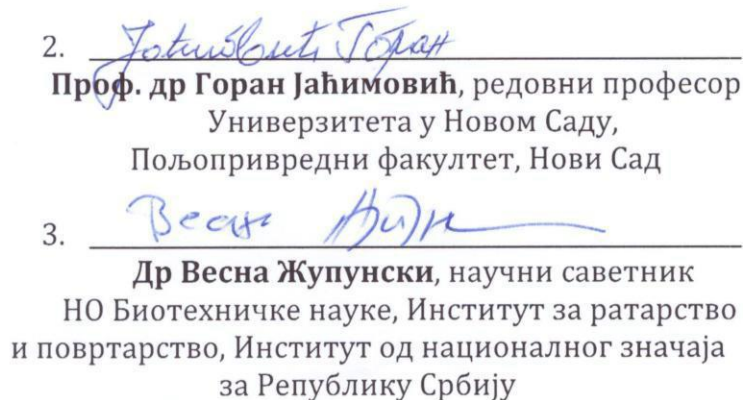 2. Јаћимовић Горан
Проф. др Горан Јаћимовић, редовни професор
Универзитета у Новом Саду,
Пољопривредни факултет, Нови Сад
3. Весна
Др Весна Жупунски, научни саветник
НО Биотехничке науке, Институт за ратарство
и повртарство, Институт од националног значаја
за Републику Србију